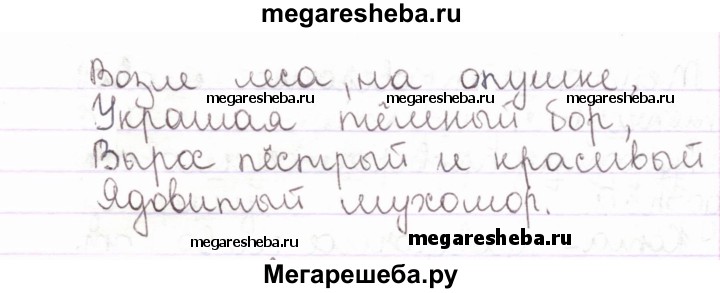 megaresheba.ru
Возле леса, на опушке,
megaresheba.ru megaresheba.ru
Украшая тёмный бор,
Вырос пёстрый и красивый
Ядовитый мухомор.
megaresheba.ru megaresheba.ru
Мегарешеба.ру